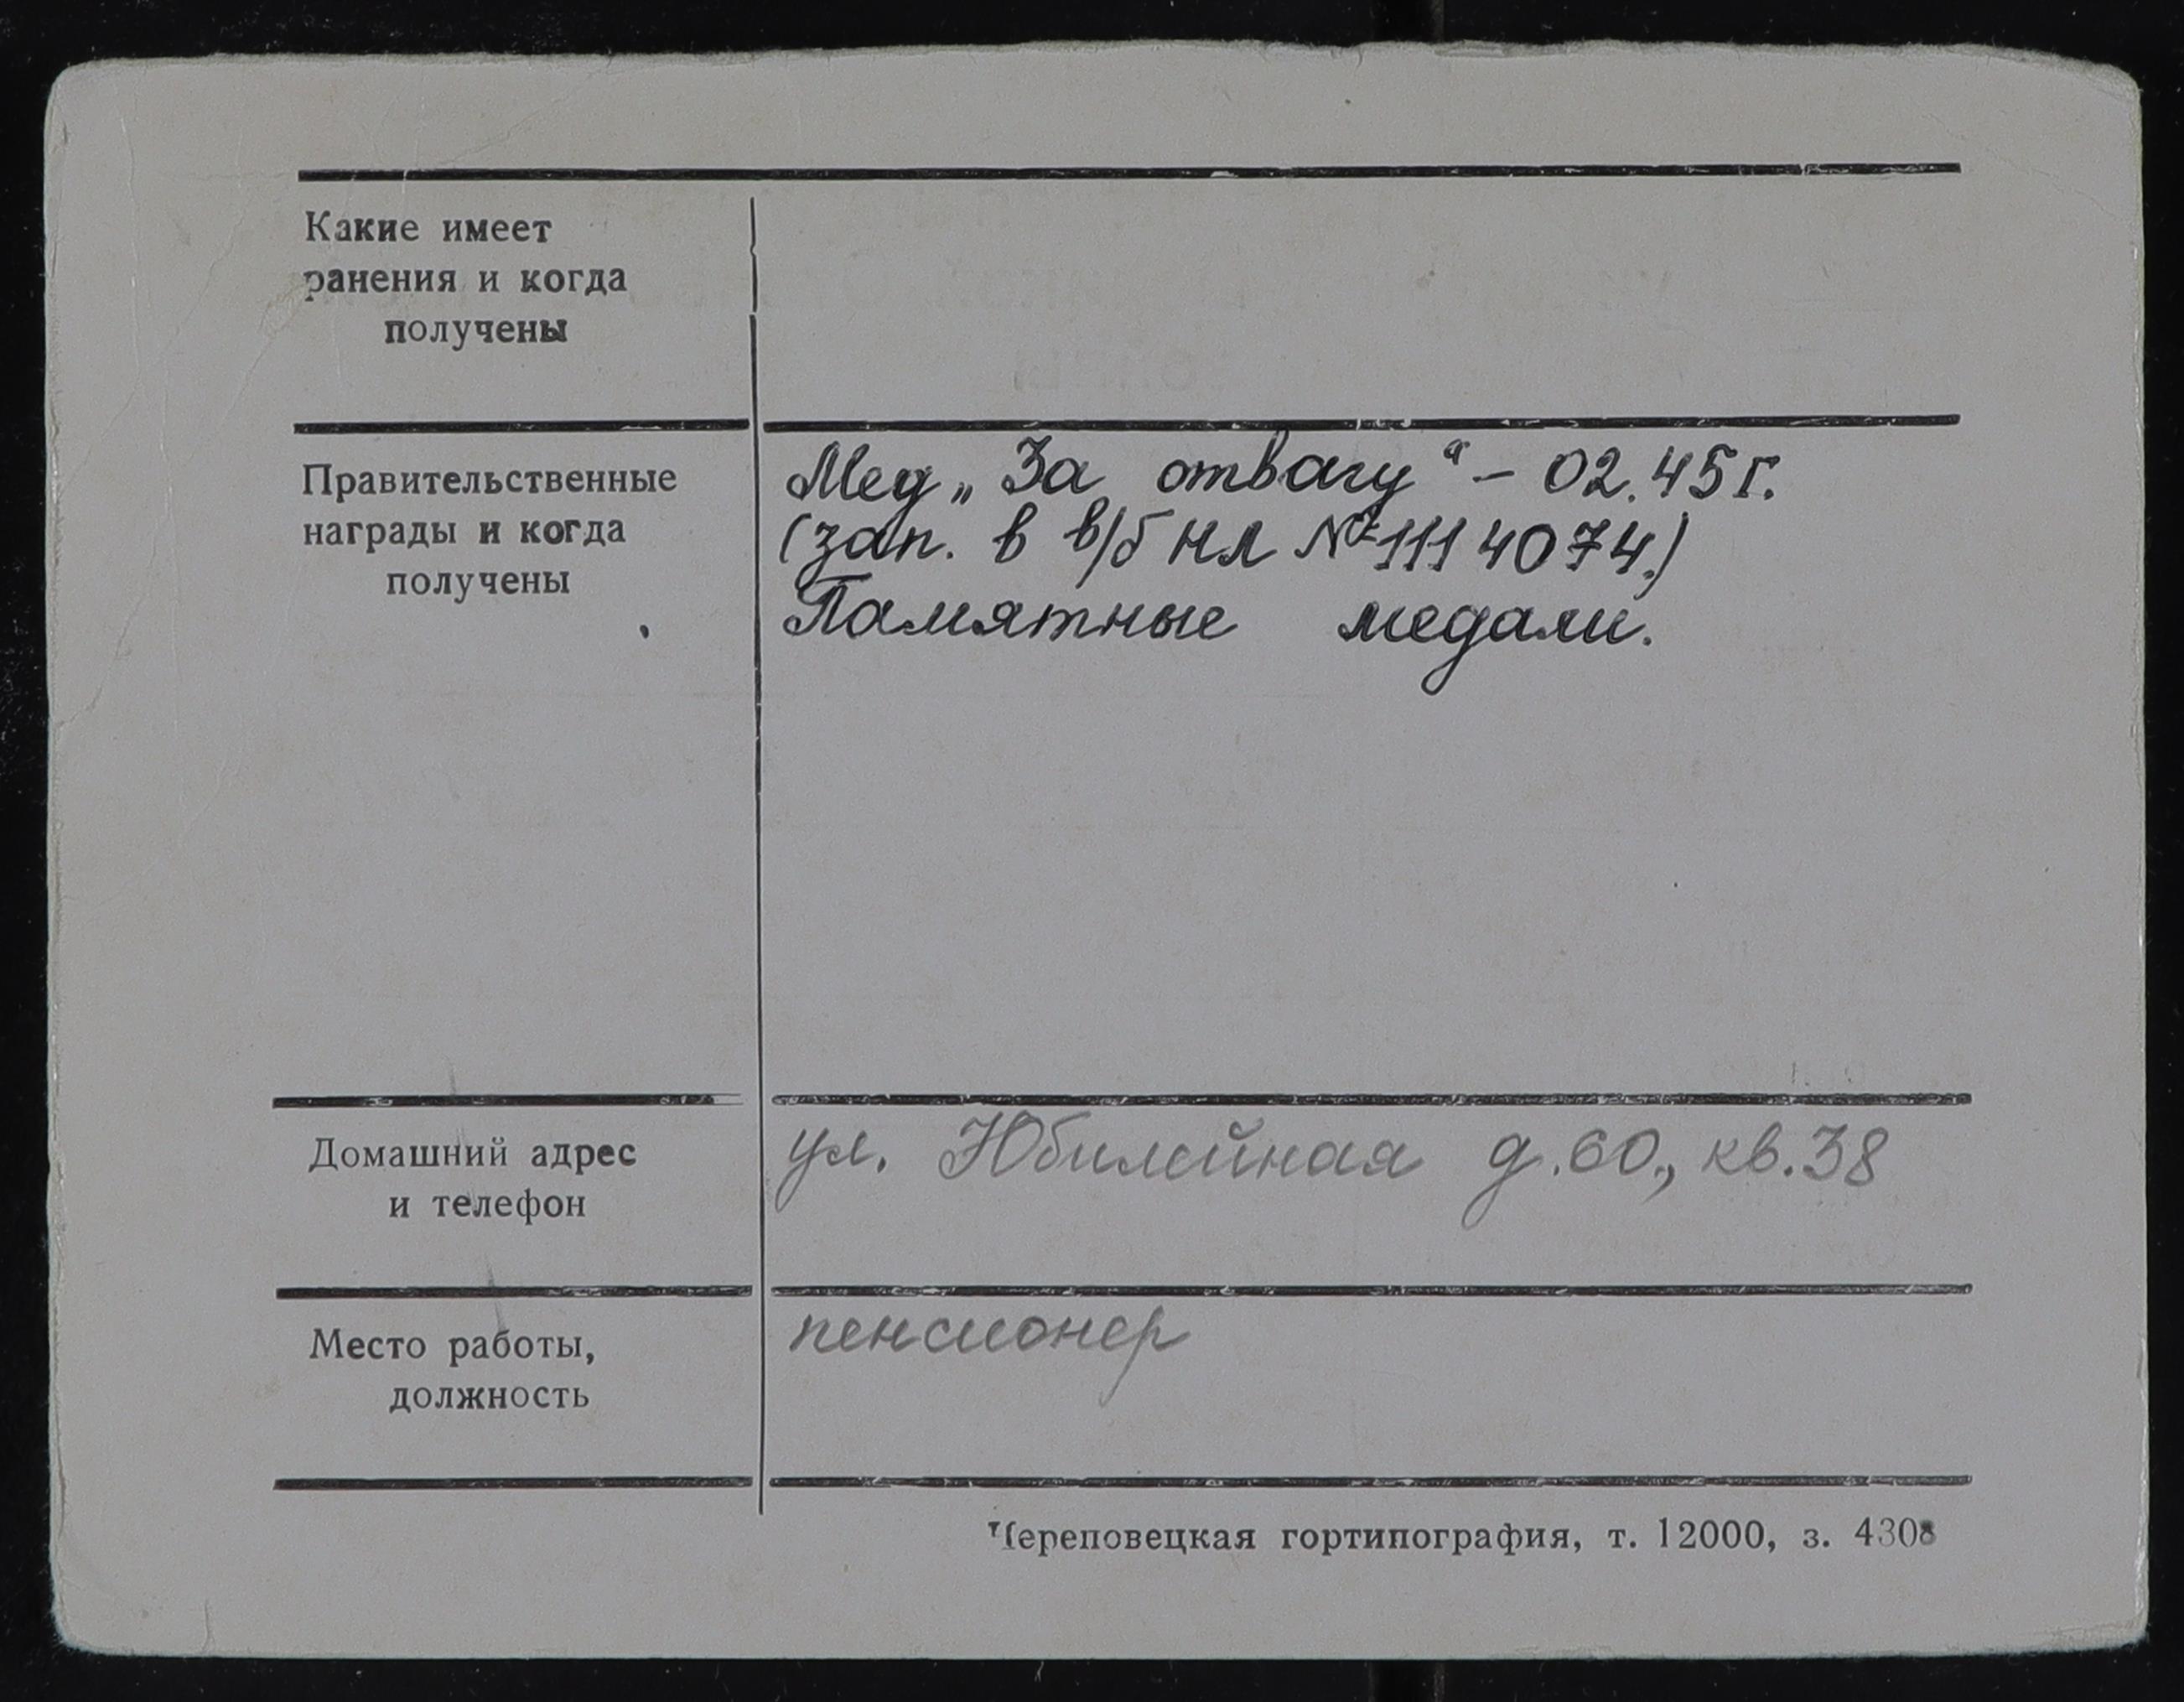 Какие имеет
ранения и когда
получены
Правительственные
награды и когда
получены
Мед „За отвагу“ – 02.45г.
(зап. в в/б НЛ №1114074.)
Памятные медали.
Домашний адрес
и телефон
ул. Юбилейная д.60., кв.38
Место работы,
должность
пенсионер
Череповецкая гортипография, т. 12000, з. 4308